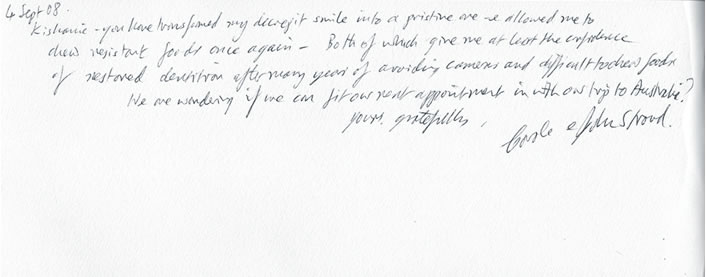 4 Sept 08.
Kishanie - you have transformed my decrepit smile into a pristine one - & allowed me to
chew resistant foods once again - Both of which give me at least the confidence
of restored dentition after many years of avoiding cameras and difficult to chew foods
We are wondering if we can fit our next appointment in with our trip to Australia?
yours gratefully,
Carole & John Stroud.